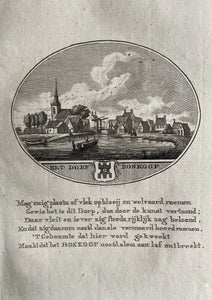 HET DORP BOSKOOP.
Mag eenig plaats of vlek op bloei en welvaard roemen
Gewis het is dit Dorp, dus door de kunst vertoond;
Daar vleit en iever zig steeds rijklijk zag beloond,
En dat zig daarom naauw dan als vermaard hoord noemen.
't Geboomte dat hier werd gekweekt
Maakt dat het BOSKOOP nooit aan lof ontbreekt.